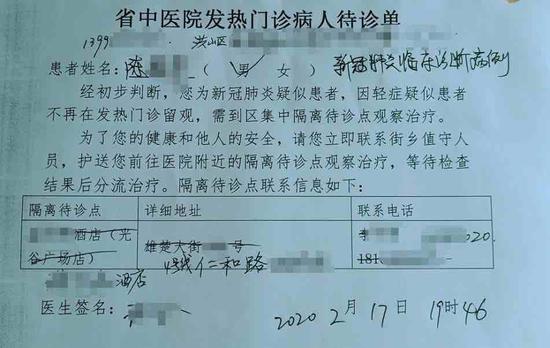 省中医院发热门诊病人待诊单
1399 洪山区
患者姓名: 陈 （男 女） 新冠肺炎临床诊断病例
经初步判断，您为新冠肺炎疑似患者，因轻症疑似患者
不再在发热门诊留观，需到区集中隔离待诊点观察治疗。
为了您的健康和他人的安全，请您立即联系街乡值守人
员，护送您前往医院附近的隔离待诊点观察治疗，等待检查
结果后分流治疗。隔离待诊点联系信息如下：
隔离待诊点 详细地址 联系电话
酒店（光 雄楚大街 号 李 2020.
谷广场店） 4号线仁和路 181
酒店
医生签名： 2020 2月17日 19时46